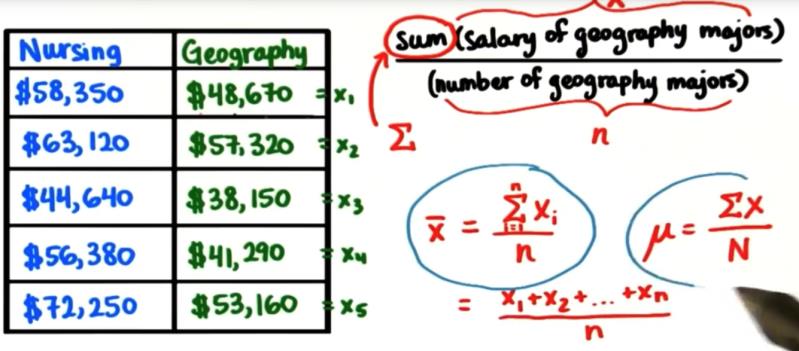 Nursing Geography
$58,350 $48,670 = x₁
$63,120 $57,320 = x₂
$44,640 $38,150 = x₃
$56,380 $41,290 = x₄
$72,250 $53,160 = x₅
sum (salary of geography majors)
(number of geography majors)
Σ n
x̄ = Σ xᵢ / n
n
i=1
μ = Σx / N
= x₁+x₂+...+xₙ / n